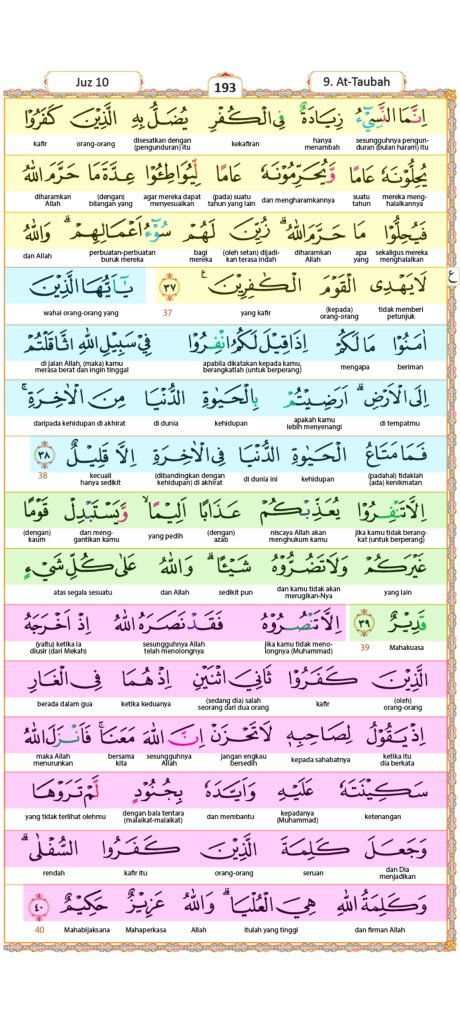 Juz 10
193
9. At-Taubah
اِنَّمَا النَّسِيْۤءُ زِيَادَةٌ فِى الْكُفْرِ يُضَلُّ بِهِ الَّذِيْنَ كَفَرُوْا
sesungguhnya pengunduran (bulan haram) itu hanya menambah kekafiran disesatkan dengan (pengunduran) itu orang-orang kafir
يُحِلُّوْنَهٗ عَامًا وَّيُحَرِّمُوْنَهٗ عَامًا لِّيُوَاطِـُٔوْا عِدَّةَ مَا حَرَّمَ اللّٰهُ
mereka menghalalkannya suatu tahun dan mengharamkannya (pada) suatu tahun yang lain agar mereka dapat menyesuaikan (dengan) bilangan yang diharamkan Allah
فَيُحِلُّوْا مَا حَرَّمَ اللّٰهُ ۗ زُيِّنَ لَهُمْ سُوْۤءُ اَعْمَالِهِمْ ۗ وَاللّٰهُ
sekaligus mereka menghalalkan apa yang diharamkan Allah (oleh setan) dijadikan terasa indah bagi mereka perbuatan-perbuatan buruk mereka dan Allah
لَا يَهْدِى الْقَوْمَ الْكٰفِرِيْنَ ࣖ ٣٧ يٰٓاَيُّهَا الَّذِيْنَ
tidak memberi petunjuk (kepada) orang-orang yang kafir 37 wahai orang-orang yang
ع
اٰمَنُوْا مَا لَكُمْ اِذَا قِيْلَ لَكُمُ انْفِرُوْا فِيْ سَبِيْلِ اللّٰهِ اثَّاقَلْتُمْ
beriman mengapa apabila dikatakan kepada kamu, berangkatlah (untuk berperang) di jalan Allah, (maka) kamu merasa berat dan ingin tinggal
اِلَى الْاَرْضِۗ اَرَضِيْتُمْ بِالْحَيٰوةِ الدُّنْيَا مِنَ الْاٰخِرَةِ ۚ
di tempatmu apakah kamu lebih menyenangi kehidupan di dunia daripada kehidupan di akhirat
فَمَا مَتَاعُ الْحَيٰوةِ الدُّنْيَا فِى الْاٰخِرَةِ اِلَّا قَلِيْلٌ ٣٨
(padahal) tidaklah (ada) kenikmatan kehidupan di dunia ini (dibandingkan dengan kehidupan) di akhirat kecuali hanya sedikit 38
اِلَّا تَنْفِرُوْا يُعَذِّبْكُمْ عَذَابًا اَلِيْمًا ۙ وَّيَسْتَبْدِلْ قَوْمًا
jika kamu tidak berangkat (untuk berperang) niscaya Allah akan menghukum kamu (dengan) azab yang pedih dan menggantikan kamu (dengan) kaum
غَيْرَكُمْ وَلَا تَضُرُّوْهُ شَيْـًٔاۗ وَاللّٰهُ عَلٰى كُلِّ شَيْءٍ
yang lain dan kamu tidak akan merugikan-Nya sedikit pun dan Allah atas segala sesuatu
قَدِيْرٌ ٣٩ اِلَّا تَنْصُرُوْهُ فَقَدْ نَصَرَهُ اللّٰهُ اِذْ اَخْرَجَهُ
Mahakuasa 39 jika kamu tidak menolongnya (Muhammad) sesungguhnya Allah telah menolongnya (yaitu) ketika ia diusir (dari Mekah)
الَّذِيْنَ كَفَرُوْا ثَانِيَ اثْنَيْنِ اِذْ هُمَا فِى الْغَارِ
(oleh) orang-orang kafir (sedang dia) salah seorang dari dua orang ketika keduanya berada dalam gua
اِذْ يَقُوْلُ لِصَاحِبِهٖ لَا تَحْزَنْ اِنَّ اللّٰهَ مَعَنَاۚ فَاَنْزَلَ اللّٰهُ
ketika itu dia berkata kepada sahabatnya jangan engkau bersedih sesungguhnya Allah bersama kita maka Allah menurunkan
سَكِيْنَتَهٗ عَلَيْهِ وَاَيَّدَهٗ بِجُنُوْدٍ لَّمْ تَرَوْهَا
ketenangan kepadanya (Muhammad) dan membantu dengan bala tentara (malaikat-malaikat) yang tidak terlihat olehmu
وَجَعَلَ كَلِمَةَ الَّذِيْنَ كَفَرُوا السُّفْلٰىۗ
dan Dia menjadikan seruan orang-orang kafir itu rendah
وَكَلِمَةُ اللّٰهِ هِيَ الْعُلْيَاۗ وَاللّٰهُ عَزِيْزٌ حَكِيْمٌ ٤٠
dan firman Allah itulah yang tinggi Allah Mahaperkasa Mahabijaksana 40